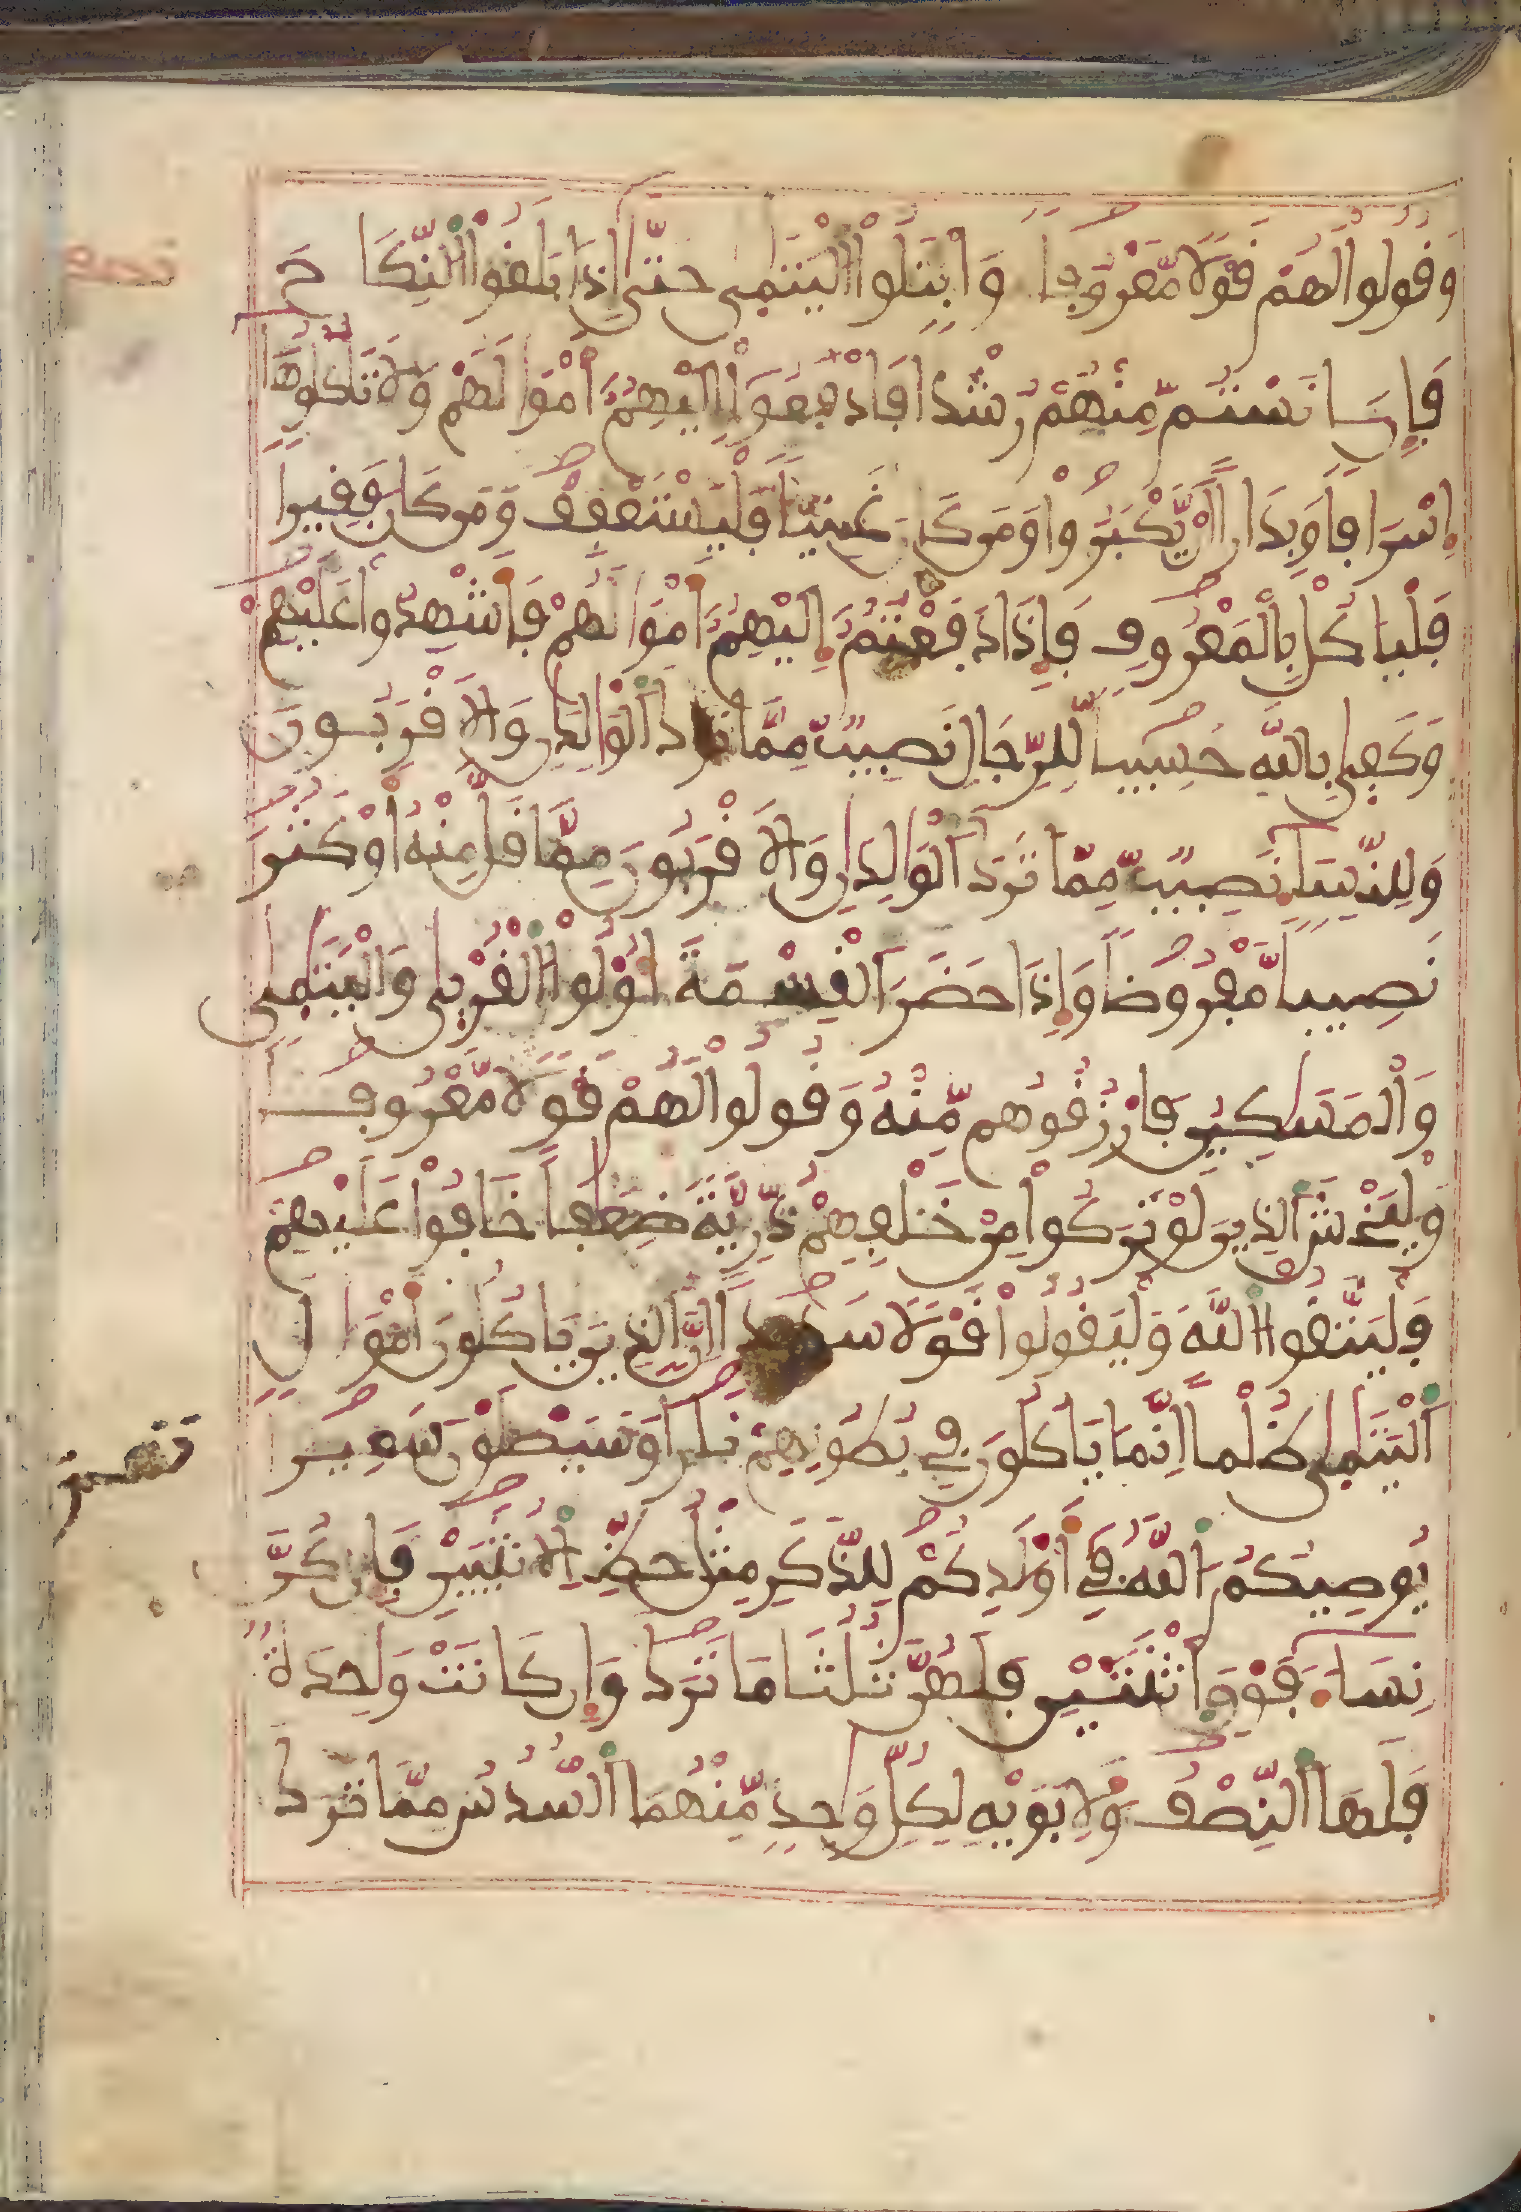 وَقُولُوا لَهُمْ قَوْلًا مَّعْرُوفًا وَابْتَلُوا الْيَتَمَى حَتَّى إِذَا بَلَغُوا النِّكَاحَ
فَإِنَ انَسْتُم مِّنْهُمْ رُشْدًا فَادْفَعُوا إِلَيْهِمُ أَمْوَالَهُمْ وَلَا تَاكُلُوهَا
إِسْرَافًا وَبِدَارًا أَنْ يَّكْبَرُوا وَمَن كَانَ غَنِيًّا فَلْيَسْتَعْفِفْ وَمَن كَانَ فَقِيرًا
فَلْيَاكُلْ بِالْمَعْرُوفِ فَإِذَا دَفَعْتُمُ إِلَيْهِمُ أَمْوَالَهُمْ فَأَشْهِدُوا عَلَيْهِمْ
وَكَفَى بِاللَّهِ حَسِيبًا لِّلرِّجَالِ نَصِيبٌ مِّمَّا تَرَكَ الْوَالِدَانِ وَالْأَقْرَبُونَ
وَلِلنِّسَاءِ نَصِيبٌ مِّمَّا تَرَكَ الْوَالِدَانِ وَالْأَقْرَبُونَ مِمَّا قَلَّ مِنْهُ أَوْ كَثُرَ
نَصِيبًا مَّفْرُوضًا وَإِذَا حَضَرَ الْقِسْمَةَ أُوْلُوا الْقُرْبَى وَالْيَتَمَى
وَالْمَسَكِينُ فَارْزُقُوهُم مِّنْهُ وَقُولُوا لَهُمْ قَوْلًا مَّعْرُوفًا
وَلْيَخْشَ الَّذِينَ لَوْ تَرَكُوا مِنْ خَلْفِهِمْ ذُرِّيَّةً ضِعَفًا خَافُوا عَلَيْهِمْ
فَلْيَتَّقُوا اللَّهَ وَلْيَقُولُوا قَوْلًا سَدِيدًا إِنَّ الَّذِينَ يَاكُلُونَ أَمْوَالَ
الْيَتَمَى ظُلْمًا اِنَّمَا يَاكُلُونَ فِي بُطُونِهِمْ نَارًا وَسَيَصْلَوْنَ سَعِيرًا
يُوصِيكُمُ اللَّهُ فِي أَوْلَدِكُمْ لِلذَّكَرِ مِثْلُ حَظِّ الْأُنْثَيَيْنِ فَإِن كُنَّ
نِسَاءً فَوْقَ اثْنَتَيْنِ فَلَهُنَّ ثُلُثَا مَا تَرَكَ وَإِن كَانَتْ وَحِدَةٌ
فَلَهَا النِّصْفُ وَلِأَبَوَيْهِ لِكُلِّ وَحِدٍ مِّنْهُمَا السُّدُسُ مِمَّا تَرَكَ